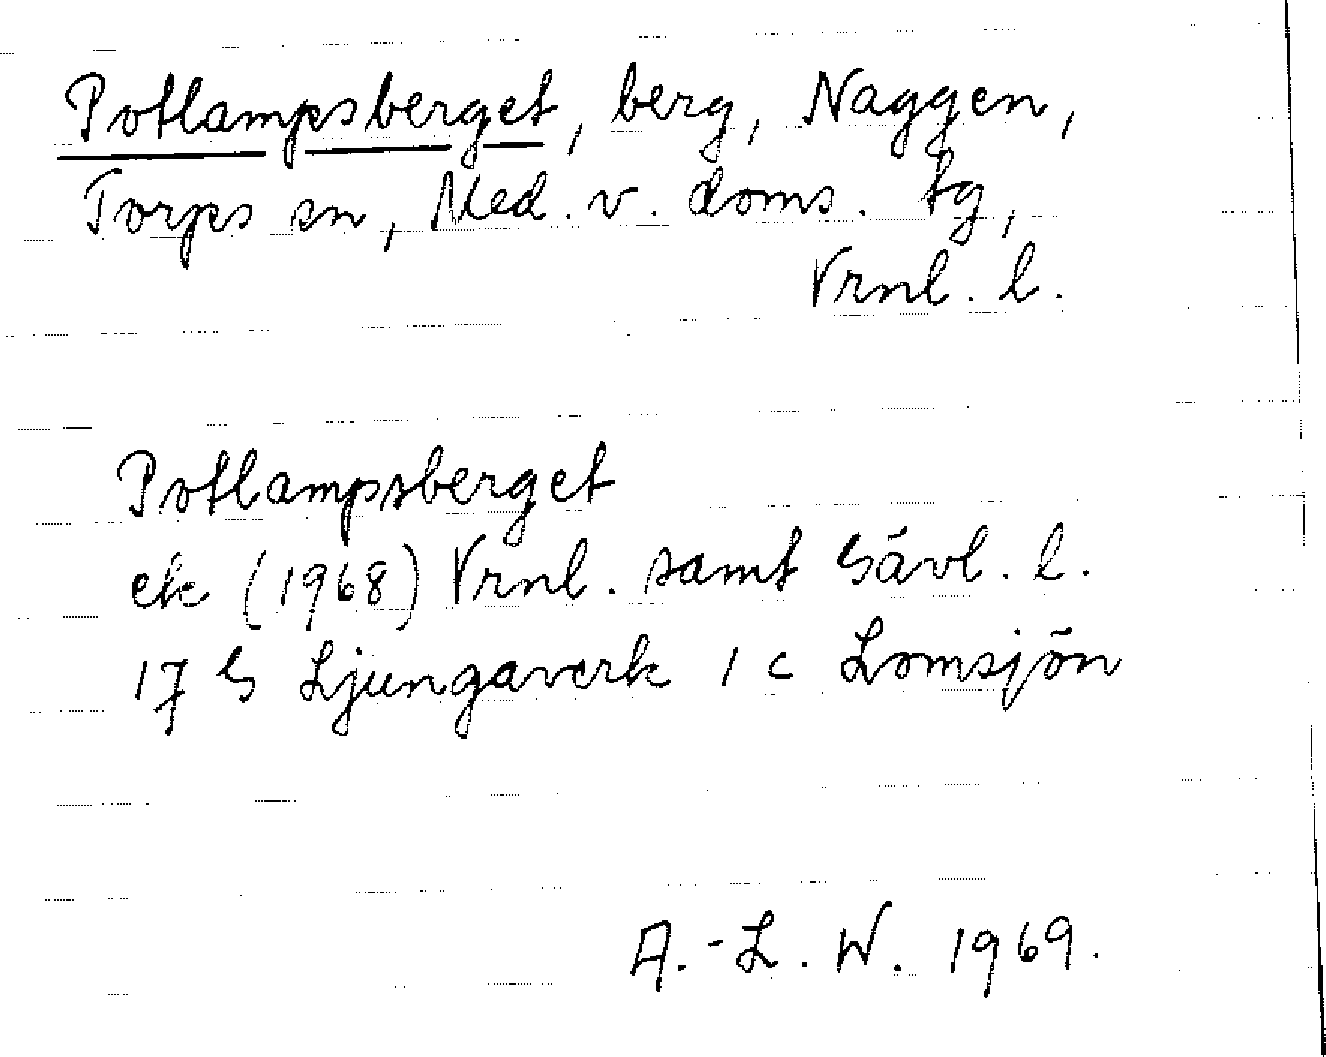 Potlampsberget, berg, Naggen,
Torps sn, Med. v. doms. tg,
Vrnl. l.
Potlampsberget
ek (1968) Vrnl. samt Gävl. l.
17 G Ljungaverk 1 c Lomsjön
A.-L. W. 1969.